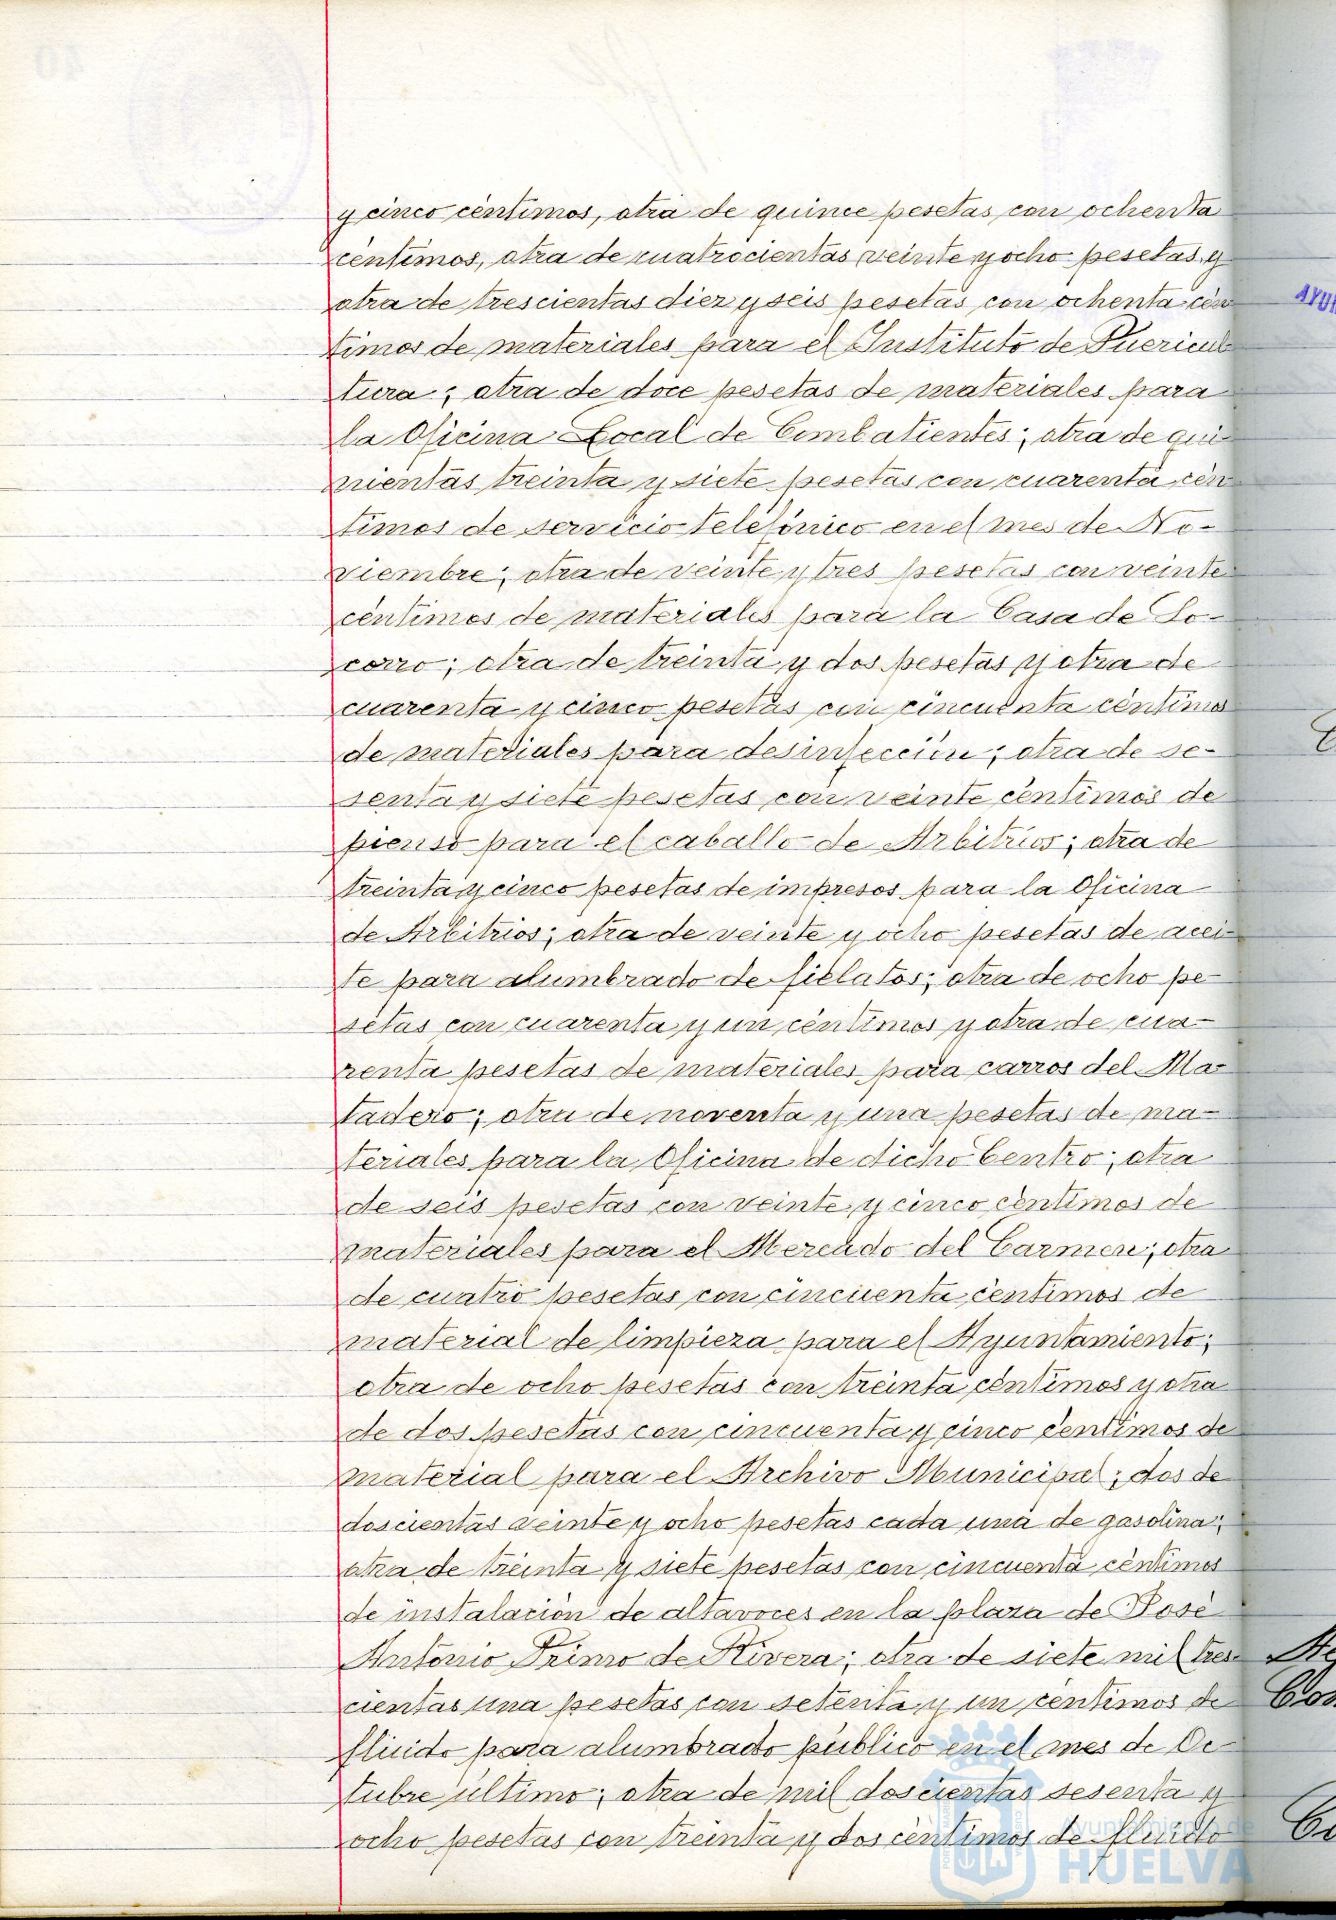 y cinco céntimos, otra de quince pesetas con ochenta
céntimos, otra de cuatrocientas veinte y ocho pesetas y
otra de trescientas diez y seis pesetas con ochenta cén
timos de materiales para el Instituto de Puericul
tura; otra de doce pesetas de materiales para
la Oficina Local de Combatientes; otra de qui-
nientas treinta y siete pesetas con cuarenta cén
timos de servicio telefónico en el mes de No-
viembre; otra de veinte y tres pesetas con veinte
céntimos de materiales para la Casa de So-
corro; otra de treinta y dos pesetas y otra de
cuarenta y cinco pesetas con cincuenta céntimos
de materiales para desinfección; otra de se-
senta y siete pesetas con veinte céntimos de
pienso para el caballo de Arbitrios; otra de
treinta y cinco pesetas de impresos para la Oficina
de Arbitrios; otra de veinte y ocho pesetas de acei-
te para alumbrado de fielatos; otra de ocho pe
setas con cuarenta y un céntimos y otra de cua-
renta pesetas de materiales para carros del Ma-
tadero; otra de noventa y una pesetas de ma-
teriales para la Oficina de dicho Centro; otra
de seis pesetas con veinte y cinco céntimos de
materiales para el Mercado del Carmen; otra
de cuatro pesetas con cincuenta céntimos de
material de limpieza para el Ayuntamiento;
otra de ocho pesetas con treinta céntimos y otra
de dos pesetas con cincuenta y cinco céntimos de
material para el Archivo Municipal; dos de
doscientas veinte y ocho pesetas cada una de gasolina;
otra de treinta y siete pesetas con cincuenta céntimos
de instalación de altavoces en la plaza de José
Antonio Primo de Rivera; otra de siete mil tres-
cientas una pesetas con setenta y un céntimos de
fluido para alumbrado público en el mes de Oc-
tubre último; otra de mil doscientas sesenta y
ocho pesetas con treinta y dos céntimos de fluido
Ayuntamiento de
HUELVA